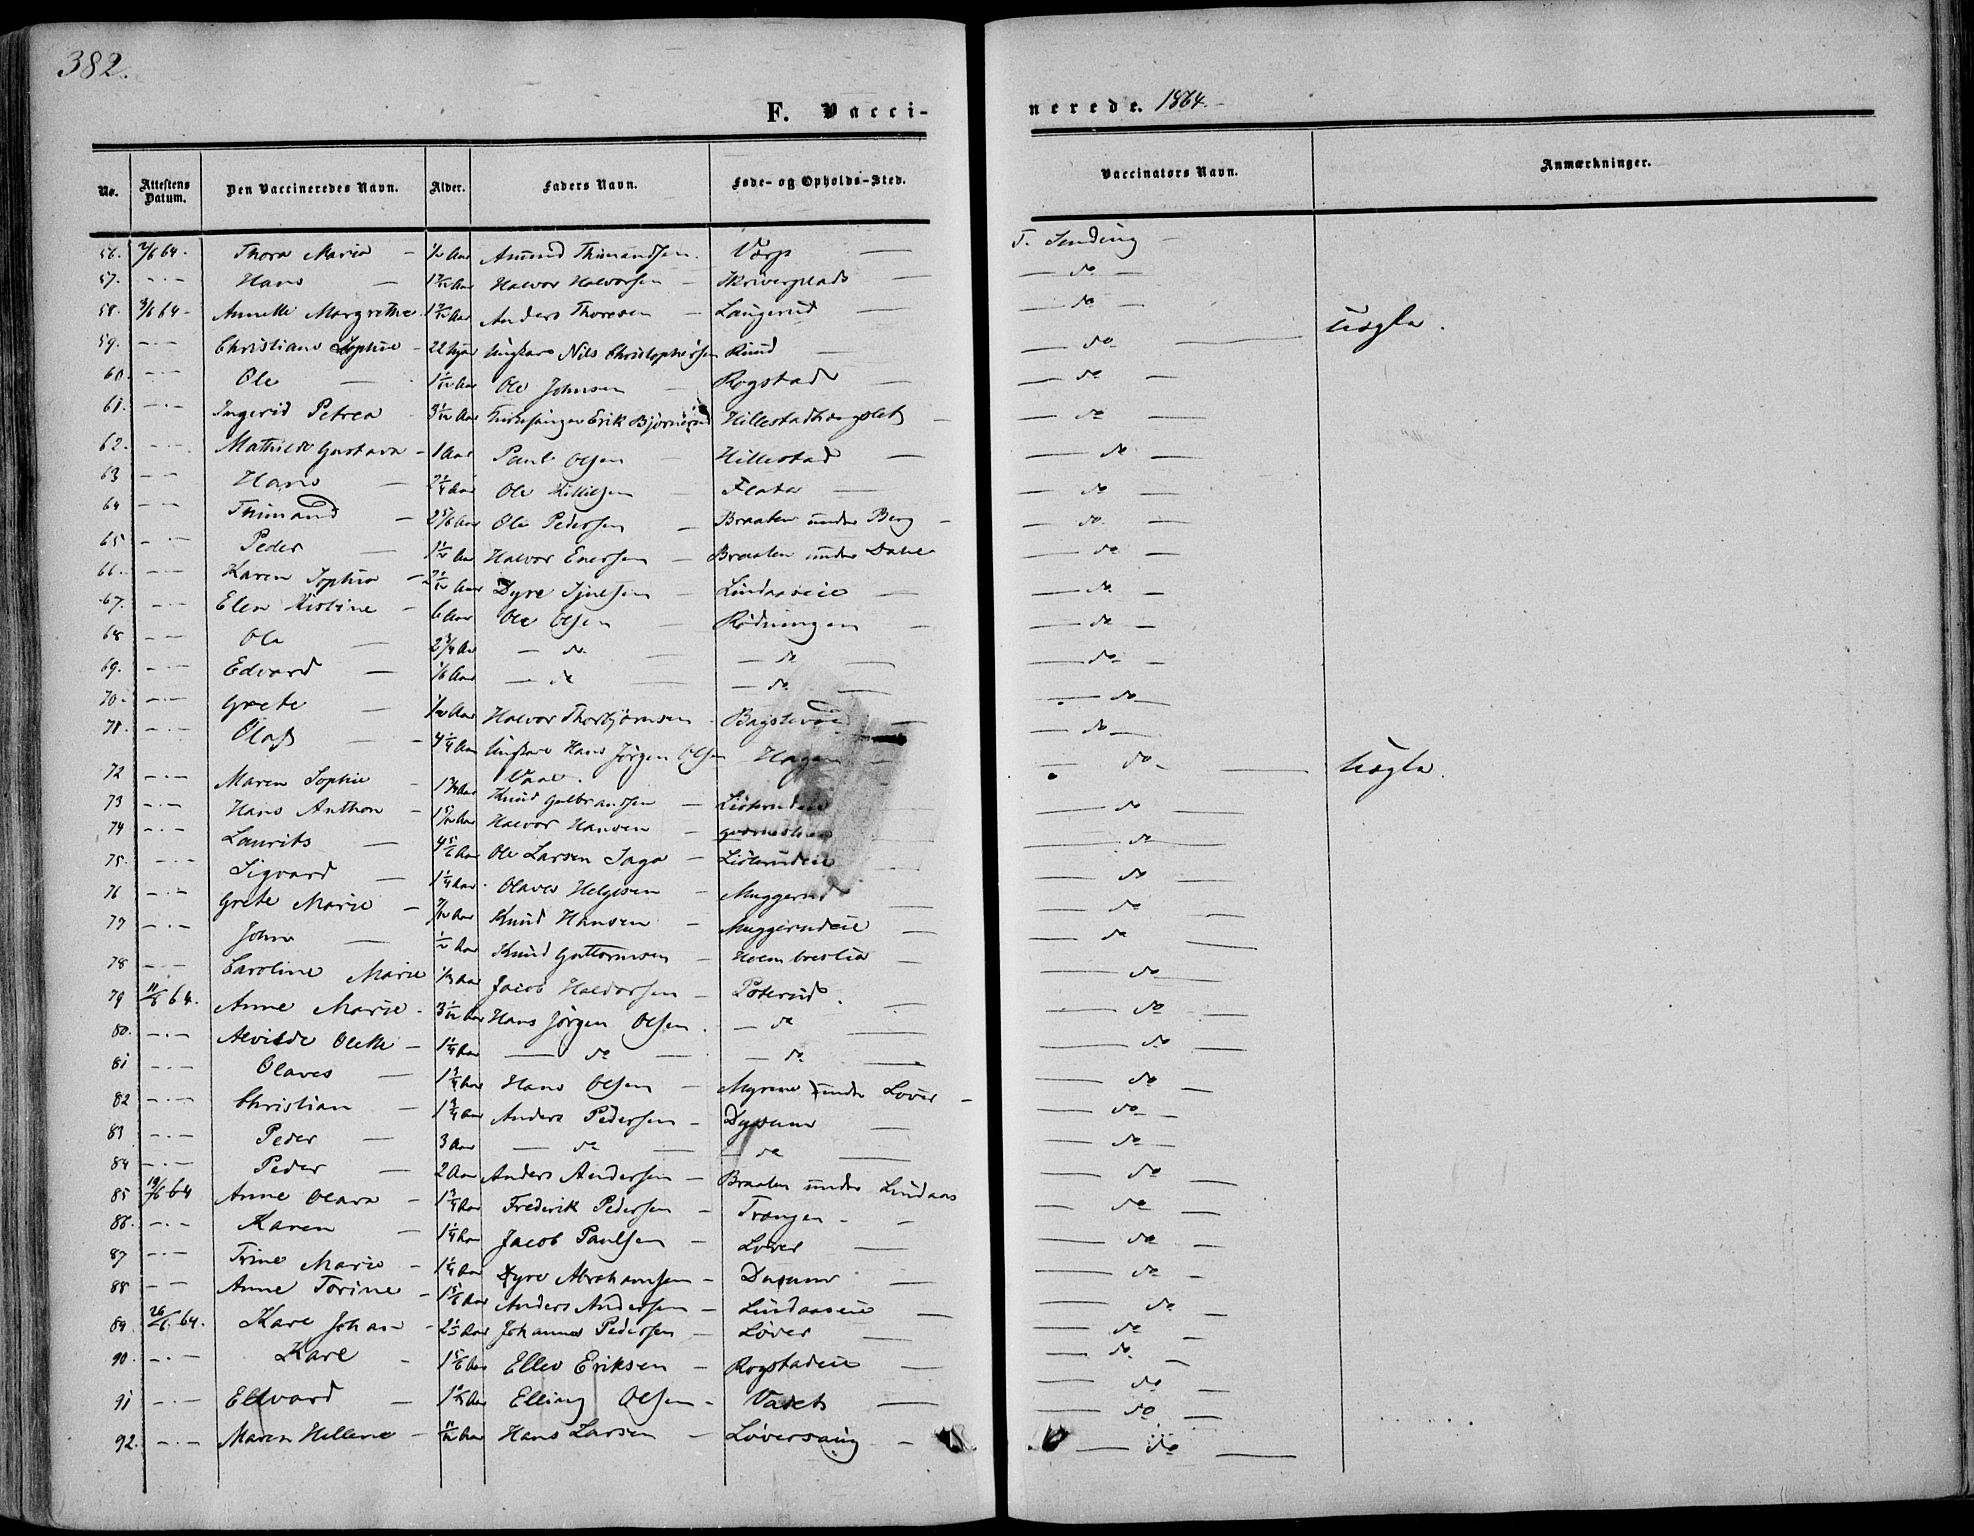 382.
F. Vacci-
nerede. 1864.
No. Attestens Datum. Den Vaccineredes Navn. Alder. Faders Navn. Føde- og Opholds-Sted. Vaccinators Navn. Anmærkninger.
56. 2/6 64. Thora Maria - 1/2 Aar Amund Thimandsen. Vårp — T. Sending —
57. - . - Hans — Aar Halvor Halvorsen - Skriverplads — do —
58. 3/6 64 - Annette Margrethe Aar Anders Thoresen - Langerud — do —
59. - . - Christiane Sophie - 22 Ungkarl Nils Christophersen Ruud — do — uægte.
60 - . - Ole — Aar Ole Johnsen - Rogstad — do —
61. - . - Ingerid Petrea - 3 1/12 Aar Kirkesanger Erik Bjørnerud Hillestadhougslet - do —
62. - . - Mathilde Gustava - 1 Aar Paul Olsen - Hillestad — do —
63 - - Hans — 2 1/4 Aar Ole Killilsen - Flata — do —
64 - - Thimand - 2 5/6 Aar Ole Pedersen - Braaten under Berg - do —
65 - . - Peder — 1 1/2 Aar Halvor Enersen - Braaten under Dahle do —
66. - . - Karen Sophia - 2 1/12 Aar Dyre Sjulsen - Lindaaseie — do —
67. - . - Elen Kirstine - 6 Aar Ole Olsen - Rødningen — do —
68 - - Ole — 2 3/4 Aar - do — - do — do —
69. - - Edvard — 1/6 Aar - do — - do — do —
70. - . - Grete — 1/2 Aar Halvor Thorbjørnsen - — do —
71. - . - Olaf — 4 1/4 Aar Ungkarl Hans Jørgen Olsen Hagen — do —
Vaal. do — uægte.
72 - . - Maren Sophie - 1 3/4 Aar Knud Gulbrandsen — Listerudeie do —
73 - . - Hans Anthon - Aar Halvor Hansen - do —
74 - . - Laurits — 4 5/6 Aar Ole Larsen Saga - Listerudeie do —
75. - . - Sigvard — 1 1/4 Aar. Olaves Helgesen - Muggerud — do —
76 - . - Grete Marie - 7/12 Aar Knud Hansen - Muggerudeie — do —
77 - . - John — 1/2 Aar Knud Guttormsen - Holmbreslia — do —
78 - . - Caroline Marie Aar Jacob Haldorsen - Poterud. — do —
79 11/6 64. Anne Marie - 3 1/12 Aar Hans Jørgen Olsen - - do — do —
80. - . - Alvilde Oleth - 1 1/4 Aar — do — - do — do —
81 - . - Olaves — 1 3/4 Aar Hans Olsen - Myrene under Løver - do —
82 - . - Christian — 1 3/4 Aar Anders Pedersen - Dysum — do —
83 - . - Peder — 3 Aar — do — do — do —
84 - . - Peder — 2 Aar Anders Andersen - Braaten under Lindaas do —
85 19/6 64 Anne Olava - 1 3/4 Aar Frederik Pedersen - Trongen - do —
86. - . - Karen — 1 1/4 Aar Jacob Paulsen - Løver — do —
87 - . - Trine Marie - 1 1/4 Aar Dyre Abrahamsen - Dusum — do —
88 - . - Anne Torine - 1 5/6 Aar Anders Andersen - Lindaaseie — do —
89 26/6 64. Karl Johan - 2 1/3 Aar Johannes Pedersen - Løver — do —
90 - . - Karl - 1 5/6 Aar Ellev Eriksen - Rogstadeie — do —
91 - . - Edvard - Aar Elling Olsen - Vadet — do —
92. - . - Maren Hellene - 11/12 Aar Hans Larsen - Løversaug — do —